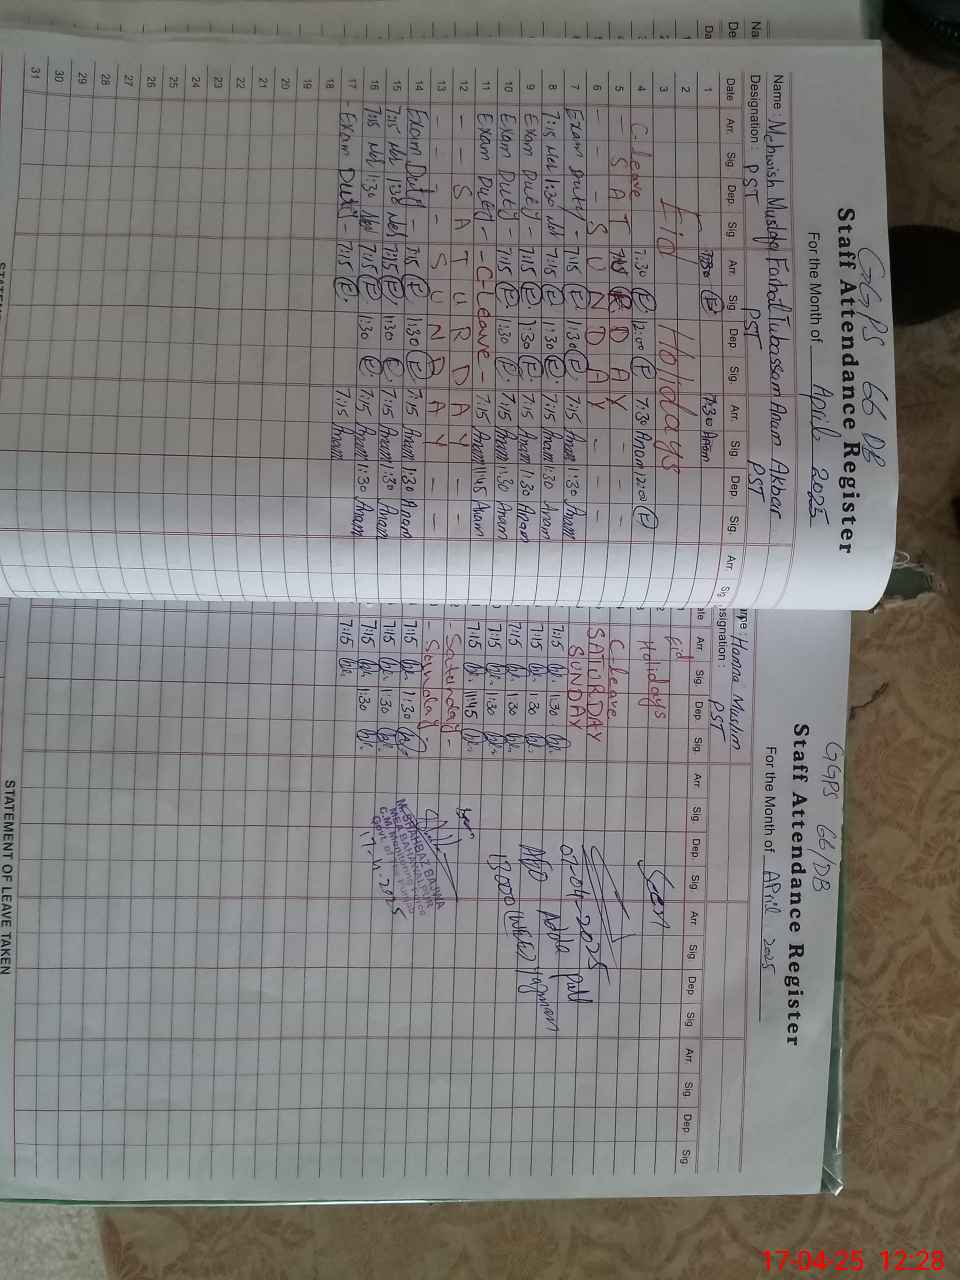 GGPS 66 DB
Staff Attendance Register
For the Month of April 2025
Name : Mehwish Mustafa Farhat Tubassam Anum Akbar
Designation : PST PST PST
Date Arr. Sig Dep. Sig. Arr. Sig Dep. Sig. Arr. Sig. Dep. Sig. Arr. Sig
1 7:30 E 7:30 Anam
2 Eid Holidays
3
4 C-leave 7:30 E 12:00 E 7:30 Anam 12:00 E
5 - - S A T R D A Y - -
6 - - - S U N D A Y - - -
7 Exam Duty - 7:15 E 1:30 E 7:15 Anam 1:30 Anam
8 7:15 Meh 1:30 Meh 7:15 E 1:30 E 7:15 Anam 1:30 Anam
9 Exam Duty - 7:15 E 1:30 E 7:15 Anam 1:30 Anam
10 Exam Duty - 7:15 E 1:30 E 7:15 Anam 1:30 Anam
11 Exam Duty - - C-Leave - 7:15 Anam 11:45 Anam
12 - - S A T U R D A Y - -
13 - - - S U N D A Y - -
14 Exam Duty - 7:15 E 1:30 E 7:15 Anam 1:30 Anam
15 7:15 Meh 1:30 Meh 7:15 E 1:30 E 7:15 Anam 1:30 Anam
16 7:15 Meh 1:30 Meh 7:15 E 1:30 E 7:15 Anam 1:30 Anam
17 - Exam Duty - 7:15 E 7:15 Anam
18
19
20
21
22
23
24
25
26
27
28
29
30
31
GGPS 66/DB
Staff Attendance Register
For the Month of April 2025
Hamna Muslim
signation : PST
ate Arr. Sig. Dep. Sig. Arr. Sig. Dep Sig. Arr. Sig. Dep Sig Arr. Sig. Dep Sig
Eid
Holidays
C-leave
SATURDAY
SUNDAY
7:15 1:30
7:15 1:30
7:15 1:30
7:15 1:30
7:15 11:45
- Saturday -
- Sunday -
7:15 1:30
7:15 1:30
7:15 1:30
7:15
Seen
07-04-2025
AEO Adda pull
13000 (W-EE) Yazman
M. SHAHBAZ BAJWA
MEA BAHAWALPUR
C.M Monitoring Force
Govt. of the Punjab
17-4-2025
STATEMENT OF LEAVE TAKEN
17-04-25 12:28